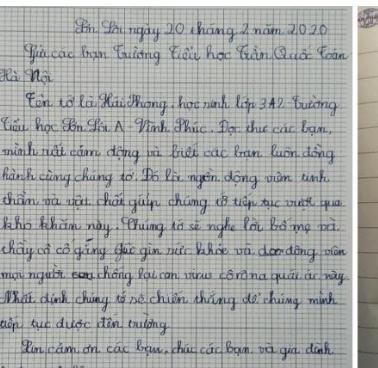 Sơn Lôi ngày 20 tháng 2 năm 2020
Gửi các bạn Trường Tiểu học Trần Quốc Toản
Hà Nội
Tên tớ là Hải Phong, học sinh lớp 3A2 Trường
Tiểu học Sơn Lôi A Vĩnh Phúc. Đọc thư các bạn,
mình rất cảm động và biết các bạn luôn đồng
hành cùng chúng tớ. Đó là nguồn động viên tinh
thần và vật chất giúp chúng tớ tiếp tục vượt qua
khó khăn này. Chúng tớ sẽ nghe lời bố mẹ và
thầy cô cố gắng giữ gìn sức khỏe và động viên
mọi người chống lại con virus côrôna quái ác này.
Nhất định chúng tớ sẽ chiến thắng để chúng mình
tiếp tục được đến trường.
Xin cảm ơn các bạn, chúc các bạn và gia đình